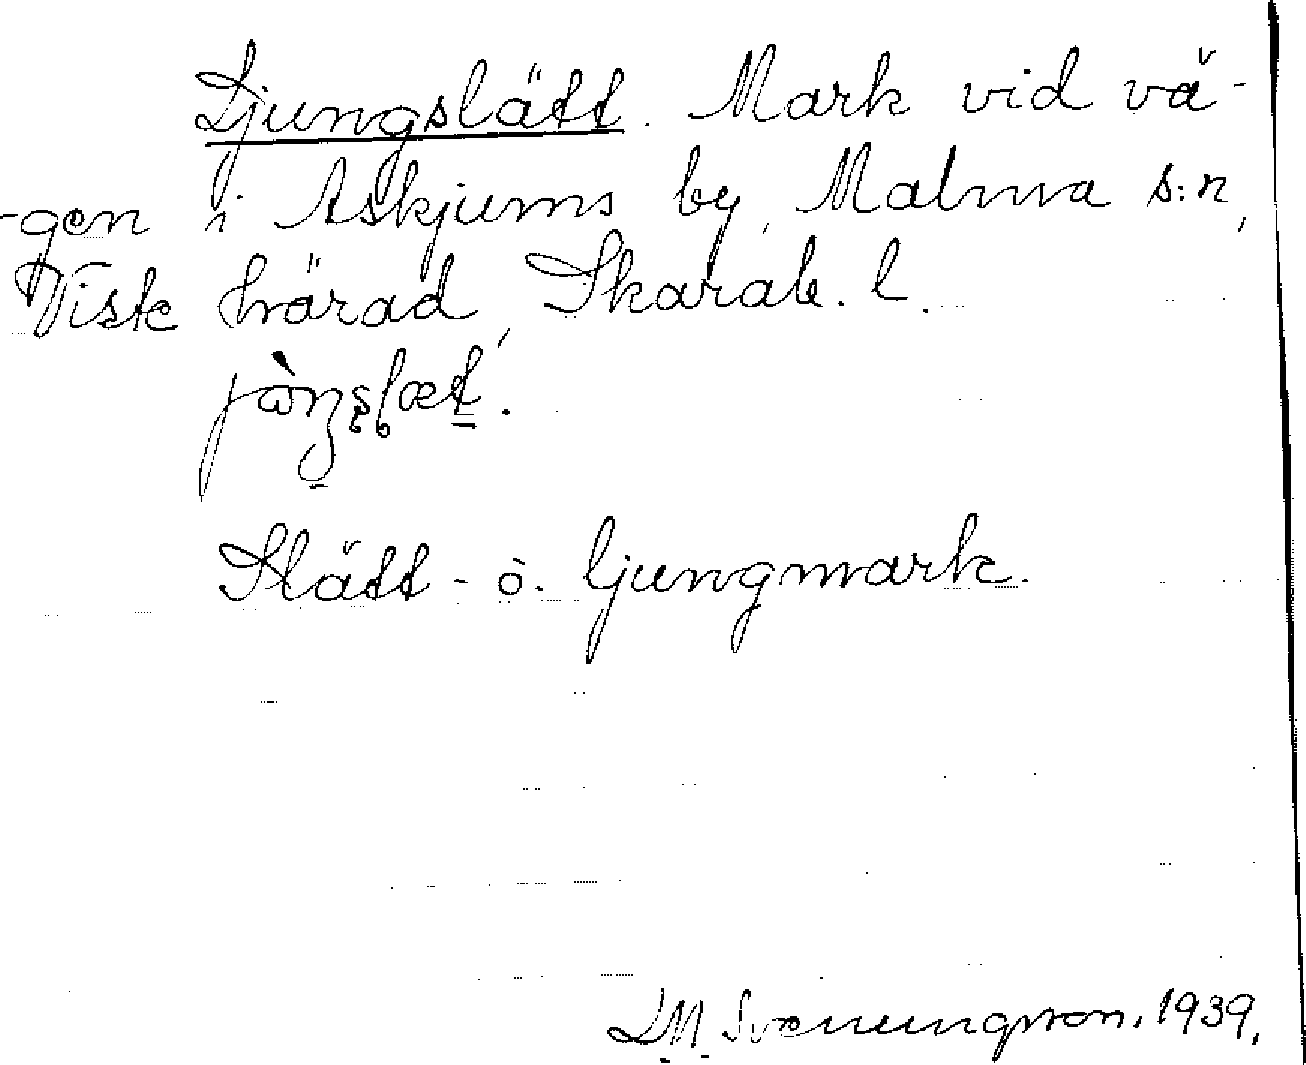 Ljungslätt. Mark vid vä-
-gen i Askjums by, Malma s:n,
Viste härad, Skarab. l.
Slätt- o. ljungmark.
D.M. Svenungsson. 1939.